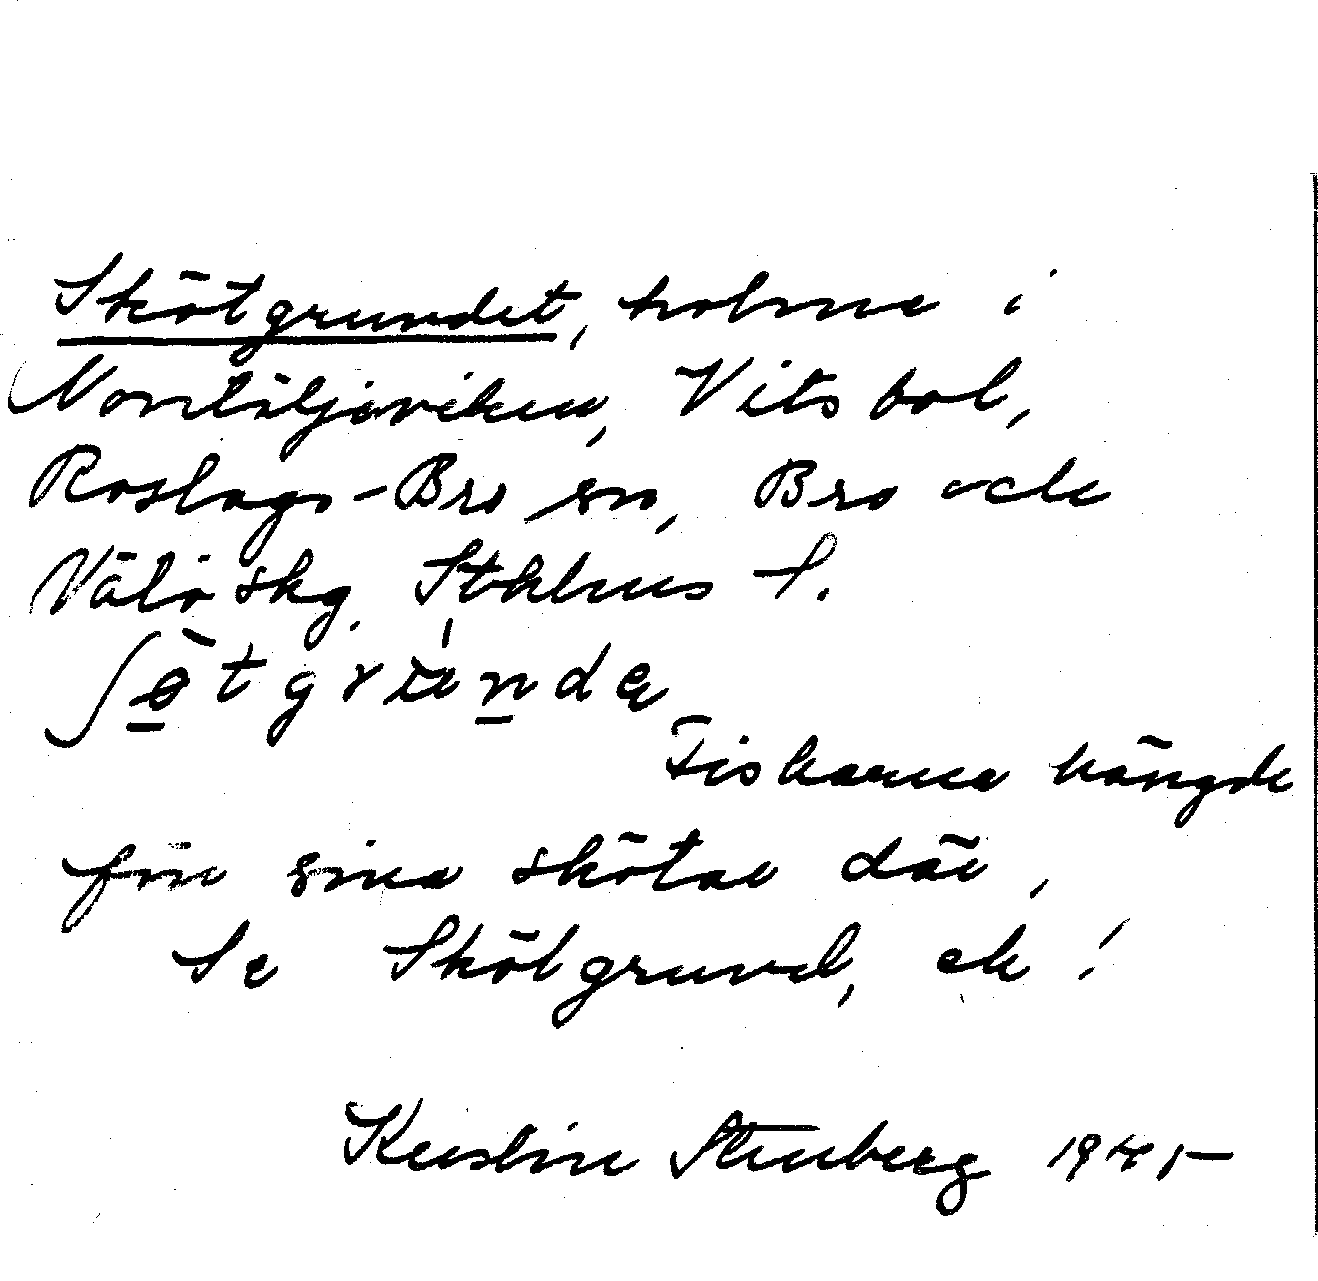 Skötgrundet, holme i
Norrtäljeviken, Vitsbol,
Roslags-Bro sn, Bro och
Väiö skg. Sthlms l.
Fiskarna hängde
förr sina skötar där,
Se Skötgrund, ek!
Kerstin Stenberg 1945